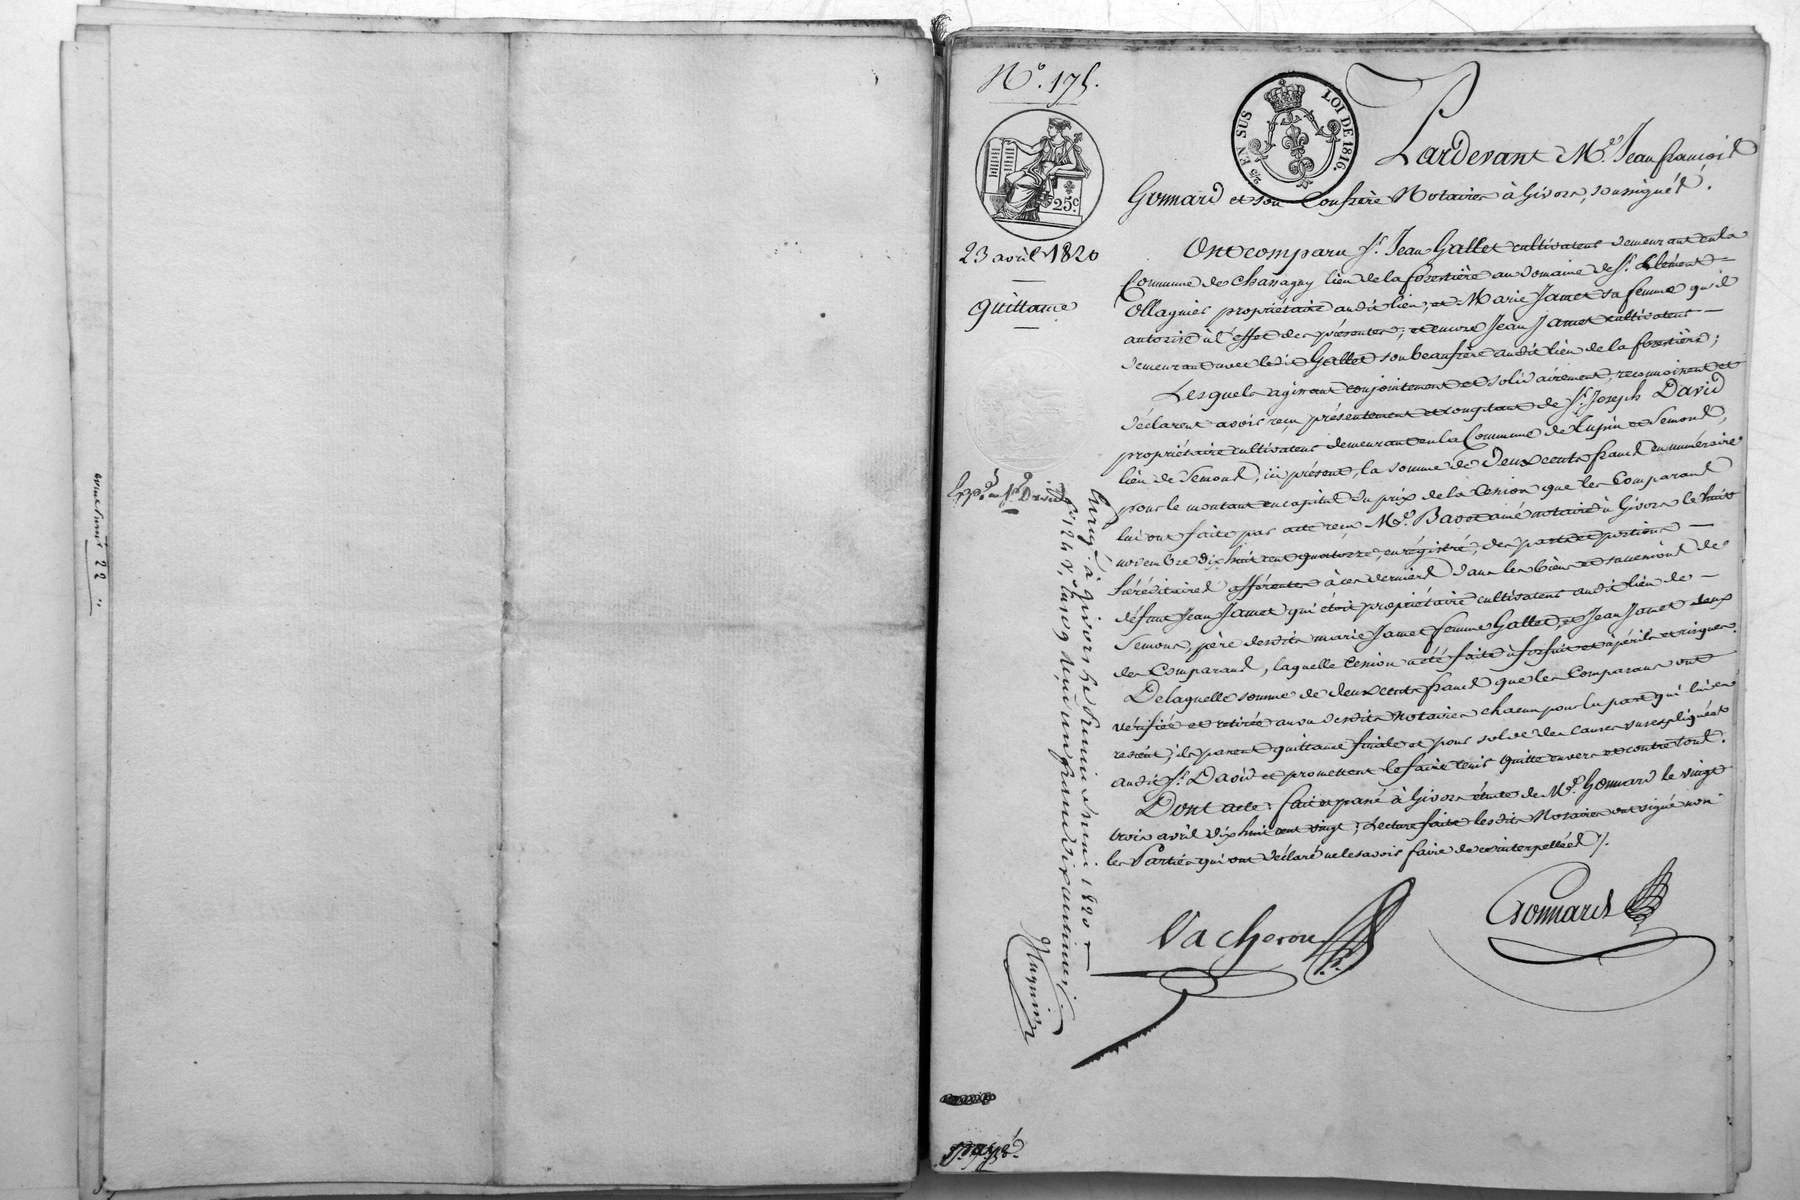 N.º 175.
EN SUS
LOI DE 1816.
25 c
23 avril 1820
quittance
Pardevant M.e Jean françois
Gonnard et son Confrère Notaires à Givors, soussignés.
Ont comparu S.r Jean Gallet cultivateur demeurant en la
Commune de Chassagny lieu de la forestière au domaine de S.r Clément
Ollagnier propriétaire audit lieu, et Marie Jamet sa femme qu'il
autorise à l'effet des présentes; et encore Jean Jamet cultivateur
demeurant avec ledit Gallet son beaufrère audit lieu de la forestière;
Lesquels agissant conjointement et solidairement, reconnoissent et
déclarent avoir reçu présentement et comptant de S.r Joseph David
propriétaire cultivateur demeurant en la Commune de Tupin et Semond,
lieu de Semond, ici présent, la somme de Deux cents francs en numéraire
pour le montant en capital du prix de la Cession que les Comparans
lui ont faite par acte reçu M.e Bavot ainé notaire à Givors le huit
novembre dix huit cent quatorze, enrégistré, des parts et portions
héréditaires afférentes à ces derniers dans les biens et succession de
défunt Jean Jamet qui étoit propriétaire cultivateur audit lieu de
Semons, père desdits marie Jamet femme Gallet, et Jean Jamet deux
des Comparans, laquelle Cession a été faite à forfait et à périls et risques.
De laquelle somme de deux cents francs que les Comparans ont
vérifiée et retirée au vu desdits Notaires chacun pour la part qui lui en
revient, ils passent quittance finale et pour solde des causes susexpliquées
audit S.r David et promettent le faire tenir quitte envers et contre tous.
Dont acte: fait et passé à Givors étude de M.e Gonnard le vingt
trois avril dix huit cent vingt, Lecture faite lesdits Notaires ont signé non
les Parties qui ont déclaré ne le savoir faire de ce interpellées /.
Vacheron
Gonnard
Expé.é au S.r David
Enreg.é à givors le 1820